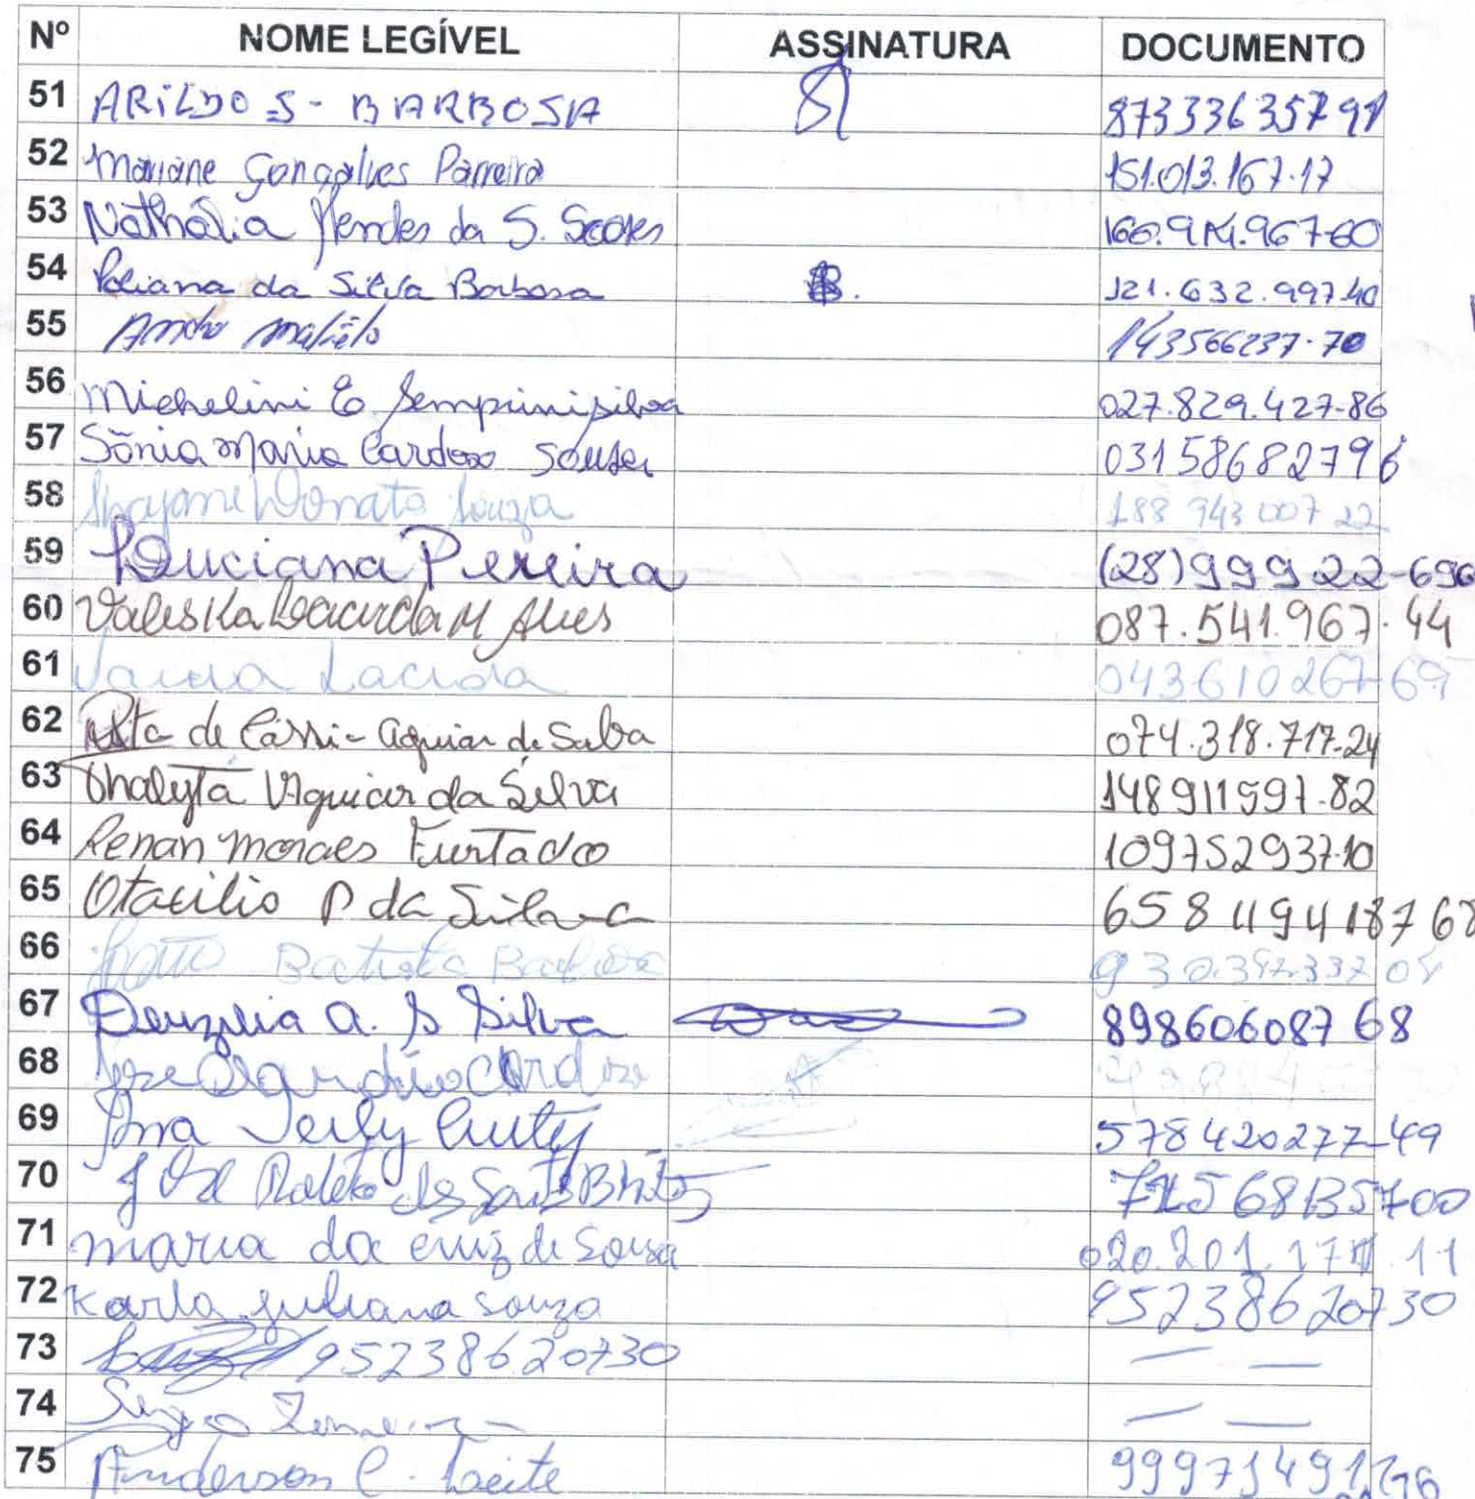 Nº NOME LEGÍVEL ASSINATURA DOCUMENTO
51 ARILDO S - BARBOSA 87333635791
52 Mariane Gonçalves Parreira 151.013.167-17
53 Nathália Mendes da S. Scores 166.914.967-60
54 Poliana da Silva Barbosa B. 121.632.997-40
55 143566237-70
56 Michelini E. Semprini silva 027.829.427-86
57 Sônia Maria Cardoso Sousa 03158682796
58 Donato Souza 188 943 007 22
59 Luciana Pereira (28)99922-696
60 Valeska Lacerda M Alves 087.541.967-44
61 Lacerda 043610267-69
62 Rita de Cássia Aguiar da Silva 074.318.717-24
63 Thalyta Aguiar da Silva 148911597-82
64 Renan Moraes Furtado 109752937-10
65 Otacilio P da Silva 658 119418768
66 Batista Barbosa
67 Deuzelia A. S Silva 898606087 68
68 Jose Cardoso
69 Ana 578420277-49
70 José dos Santos
71 maria da cruz de Sousa 020.201.177.11
72 Karla Juliana Souza 95238620730
73 95238620730 — —
74 — —
75 Anderson C. Leite